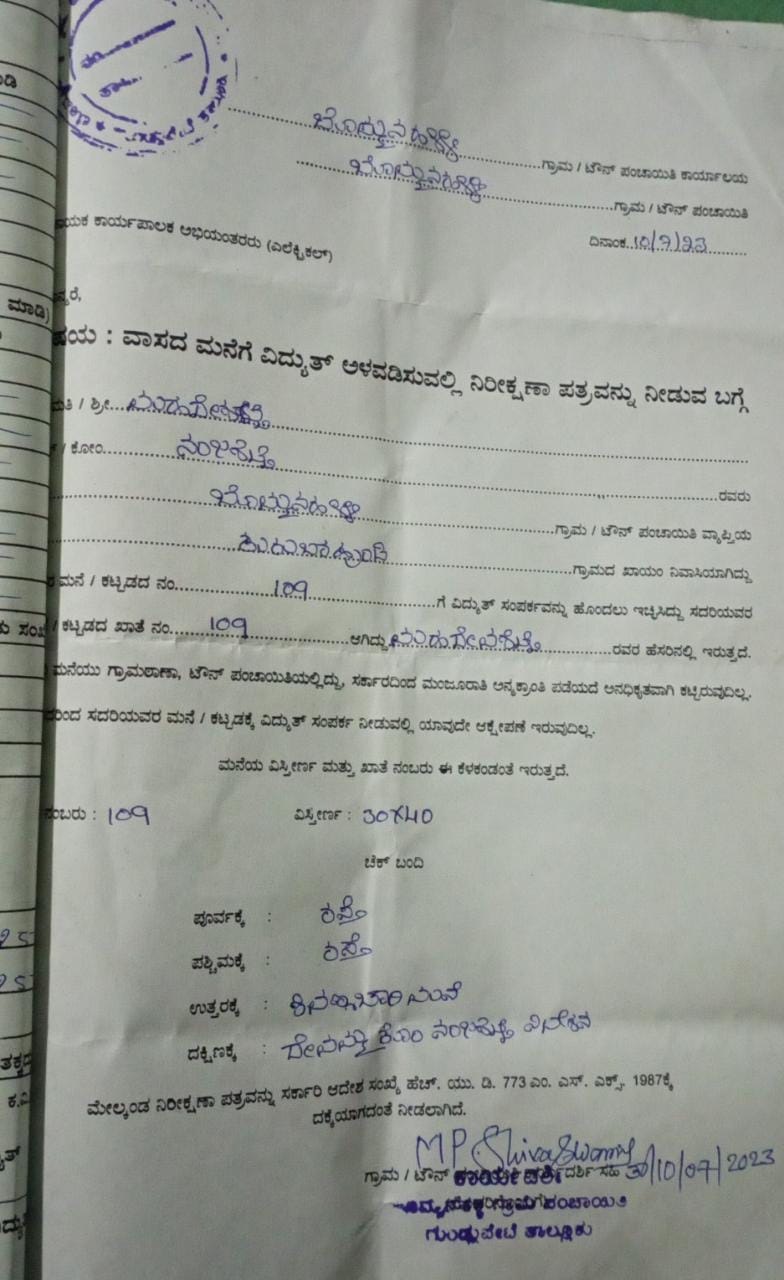 ಬೊಮ್ಮನಹಳ್ಳಿ ಗ್ರಾಮ / ಟೌನ್ ಪಂಚಾಯಿತಿ ಕಾರ್ಯಾಲಯ
ಬೊಮ್ಮನಹಳ್ಳಿ ಗ್ರಾಮ / ಟೌನ್ ಪಂಚಾಯಿತಿ
ದಿನಾಂಕ 10/7/23
ಯಕ ಕಾರ್ಯಪಾಲಕ ಅಭಿಯಂತರರು (ಎಲೆಕ್ಟ್ರಿಕಲ್)
ನ್ಯರೆ,
ಷಯ : ವಾಸದ ಮನೆಗೆ ವಿದ್ಯುತ್ ಅಳವಡಿಸುವಲ್ಲಿ ನಿರೀಕ್ಷಣಾ ಪತ್ರವನ್ನು ನೀಡುವ ಬಗ್ಗೆ
ಮತಿ / ಶ್ರೀ
/ ಕೋಂ ನಂಜಶೆಟ್ಟಿ ರವರು
ಬೊಮ್ಮನಹಳ್ಳಿ ಗ್ರಾಮ / ಟೌನ್ ಪಂಚಾಯಿತಿ ವ್ಯಾಪ್ತಿಯ
ಕುರುಬರಹುಂಡಿ ಗ್ರಾಮದ ಖಾಯಂ ನಿವಾಸಿಯಾಗಿದ್ದು
ಮನೆ / ಕಟ್ಟಡದ ನಂ. 109 ಗೆ ವಿದ್ಯುತ್ ಸಂಪರ್ಕವನ್ನು ಹೊಂದಲು ಇಚ್ಛಿಸಿದ್ದು ಸದರಿಯವರ
/ ಕಟ್ಟಡದ ಖಾತೆ ನಂ. 109 ಆಗಿದ್ದು ರವರ ಹೆಸರಿನಲ್ಲಿ ಇರುತ್ತದೆ.
ಮನೆಯು ಗ್ರಾಮಠಾಣಾ, ಟೌನ್ ಪಂಚಾಯಿತಿಯಲ್ಲಿದ್ದು, ಸರ್ಕಾರದಿಂದ ಮಂಜೂರಾತಿ ಅನ್ಯಕ್ರಾಂತಿ ಪಡೆಯದೆ ಅನಧಿಕೃತವಾಗಿ ಕಟ್ಟಿರುವುದಿಲ್ಲ.
ದರಿಂದ ಸದರಿಯವರ ಮನೆ / ಕಟ್ಟಡಕ್ಕೆ ವಿದ್ಯುತ್ ಸಂಪರ್ಕ ನೀಡುವಲ್ಲಿ ಯಾವುದೇ ಆಕ್ಷೇಪಣೆ ಇರುವುದಿಲ್ಲ.
ಮನೆಯ ವಿಸ್ತೀರ್ಣ ಮತ್ತು ಖಾತೆ ನಂಬರು ಈ ಕೆಳಕಂಡಂತೆ ಇರುತ್ತದೆ.
ನಂಬರು : 109 ವಿಸ್ತೀರ್ಣ : 30X40
ಚೆಕ್ ಬಂದಿ
ಪೂರ್ವಕ್ಕೆ : ರಸ್ತೆ
ಪಶ್ಚಿಮಕ್ಕೆ : ರಸ್ತೆ
ಉತ್ತರಕ್ಕೆ : ಮನೆ
ದಕ್ಷಿಣಕ್ಕೆ : ಕೋಂ ನಂಜಶೆಟ್ಟಿ ನಿವೇಶನ
ಮೇಲ್ಕಂಡ ನಿರೀಕ್ಷಣಾ ಪತ್ರವನ್ನು ಸರ್ಕಾರಿ ಆದೇಶ ಸಂಖ್ಯೆ ಹೆಚ್. ಯು. ಡಿ. 773 ಎಂ. ಎಸ್. ಎಕ್ಸ್. 1987ಕ್ಕೆ
ದಕ್ಕೆಯಾಗದಂತೆ ನೀಡಲಾಗಿದೆ.
MP Shiva Swamy
10/07/2023
ಗ್ರಾಮ / ಟೌನ್
ಕಾರ್ಯದರ್ಶಿ
ಗ್ರಾಮ ಪಂಚಾಯಿತಿ
ಗುಂಡ್ಲುಪೇಟೆ ತಾಲ್ಲೂಕು